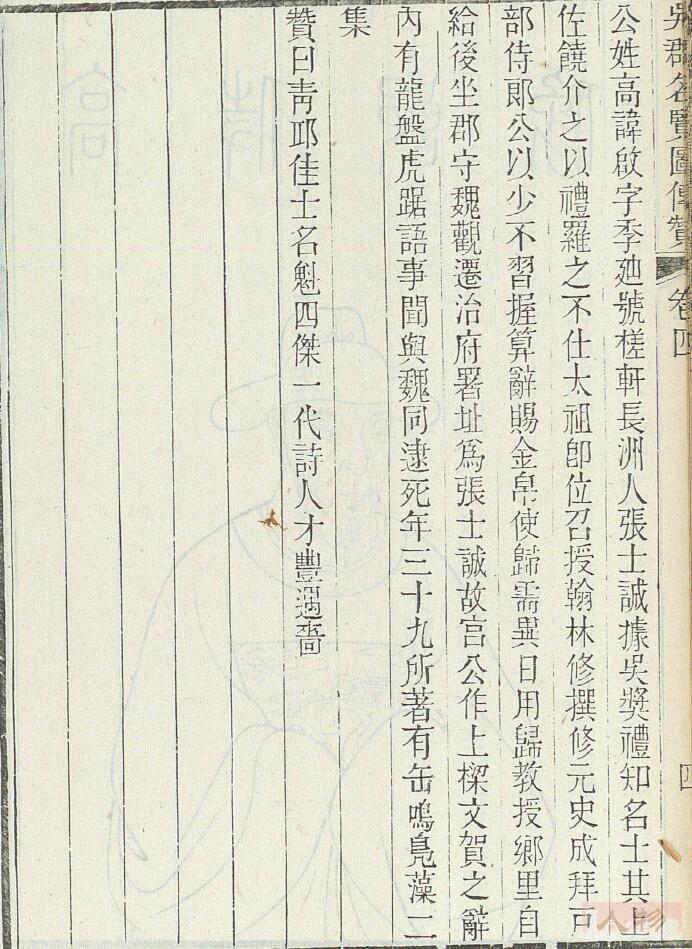 吳郡名賢圖傳贊 卷四 四
公姓高諱啟字季廸號槎軒長洲人張士誠據吳獎禮知名士其上
佐饒介之以禮羅之不仕太祖卽位召授翰林修撰修元史成拜戸
部侍郎公以少不習握算辭賜金帛使歸需異日用歸教授鄉里自
給後坐郡守魏觀遷治府署址爲張士誠故宫公作上樑文賀之辭
內有龍盤虎踞語事聞與魏同逮死年三十九所著有缶鳴鳧藻二
集
贊曰靑邱佳士名魁四傑一代詩人才豐遇嗇
人物